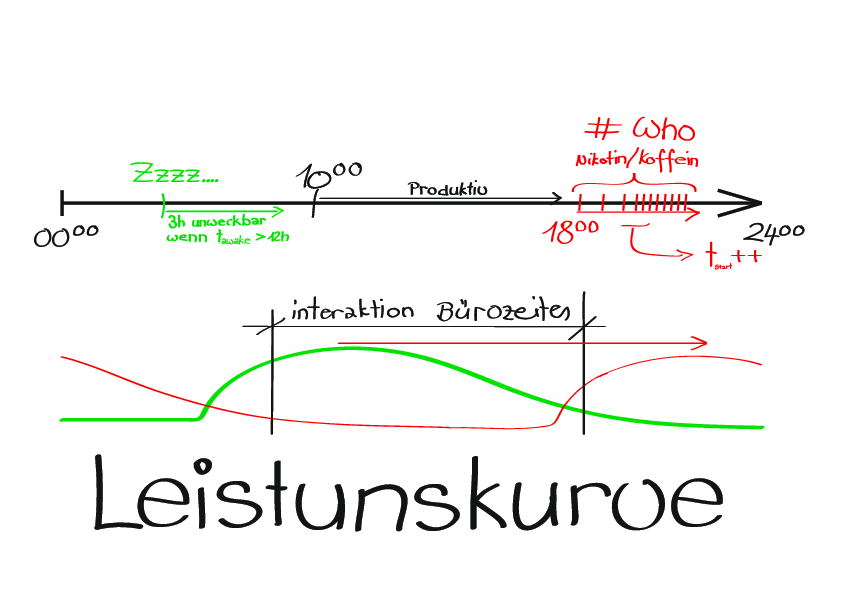 # Who
Nikotin/Koffein
Zzzz....
10⁰⁰
Produktiv
3h unweckbar
wenn t_awake >12h
00⁰⁰
18⁰⁰
24⁰⁰
t_start++
interaktion Bürozeites
Leistunskurve